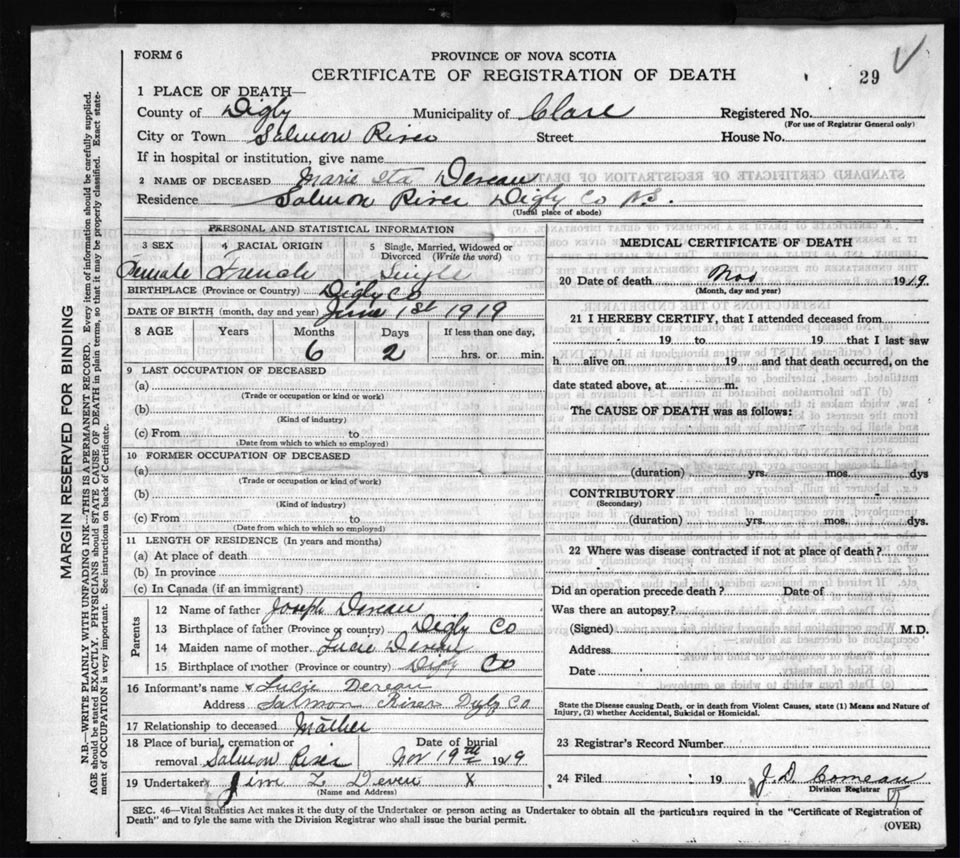 FORM 6
PROVINCE OF NOVA SCOTIA
CERTIFICATE OF REGISTRATION OF DEATH
29
1 PLACE OF DEATH—
County of Digby Municipality of Clare Registered No.
(For use of Registrar General only)
City or Town Salmon River Street House No.
If in hospital or institution, give name
2 NAME OF DECEASED Marie Ita Deveau
Residence Salmon River Digby Co N.S.
(Usual place of abode)
PERSONAL AND STATISTICAL INFORMATION
3 SEX 4 RACIAL ORIGIN 5 Single, Married, Widowed or Divorced (Write the word)
Female French Single
BIRTHPLACE (Province or Country) Digby Co
DATE OF BIRTH (month, day and year) June 1st 1919
8 AGE Years Months Days If less than one day,
6 2 hrs. or min.
9 LAST OCCUPATION OF DECEASED
(a)
(Trade or occupation or kind of work)
(b)
(Kind of industry)
(c) From to
(Date from which to which so employed)
10 FORMER OCCUPATION OF DECEASED
(a)
(Trade or occupation or kind of work)
(b)
(Kind of industry)
(c) From to
(Date from which to which so employed)
11 LENGTH OF RESIDENCE (In years and months)
(a) At place of death
(b) In province
(c) In Canada (if an immigrant)
Parents
12 Name of father Joseph Deveau
13 Birthplace of father (Province or country) Digby Co
14 Maiden name of mother Lucie Deveau
15 Birthplace of mother (Province or country) Digby Co
16 Informant's name Lucie Deveau
Address Salmon River Digby Co
17 Relationship to deceased Mother
18 Place of burial, cremation or removal Salmon River Date of burial Nov 19th 1919
19 Undertaker Jim L Deveu X
(Name and Address)
MEDICAL CERTIFICATE OF DEATH
20 Date of death Nov 1919.
(Month, day and year)
21 I HEREBY CERTIFY, that I attended deceased from
19 to 19 that I last saw
h alive on 19 and that death occurred, on the
date stated above, at m.
The CAUSE OF DEATH was as follows:
(duration) yrs. mos. dys
CONTRIBUTORY
(Secondary)
(duration) yrs. mos. dys.
22 Where was disease contracted if not at place of death?
Did an operation precede death? Date of
Was there an autopsy?
(Signed) M.D.
Address
Date
State the Disease causing Death, or in death from Violent Causes, state (1) Means and Nature of
Injury, (2) whether Accidental, Suicidal or Homicidal.
23 Registrar's Record Number
24 Filed 19 J. D. Comeau
Division Registrar
SEC. 46—Vital Statistics Act makes it the duty of the Undertaker or person acting as Undertaker to obtain all the particulars required in the "Certificate of Registration of
Death" and to fyle the same with the Division Registrar who shall issue the burial permit.
(OVER)
MARGIN RESERVED FOR BINDING
N.B.—WRITE PLAINLY WITH UNFADING INK—THIS IS A PERMANENT RECORD. Every item of information should be carefully supplied.
AGE should be stated EXACTLY. PHYSICIANS should STATE CAUSE OF DEATH in plain terms, so that it may be properly classified. Exact state-
ment of OCCUPATION is very important. See instructions on back of Certificate.